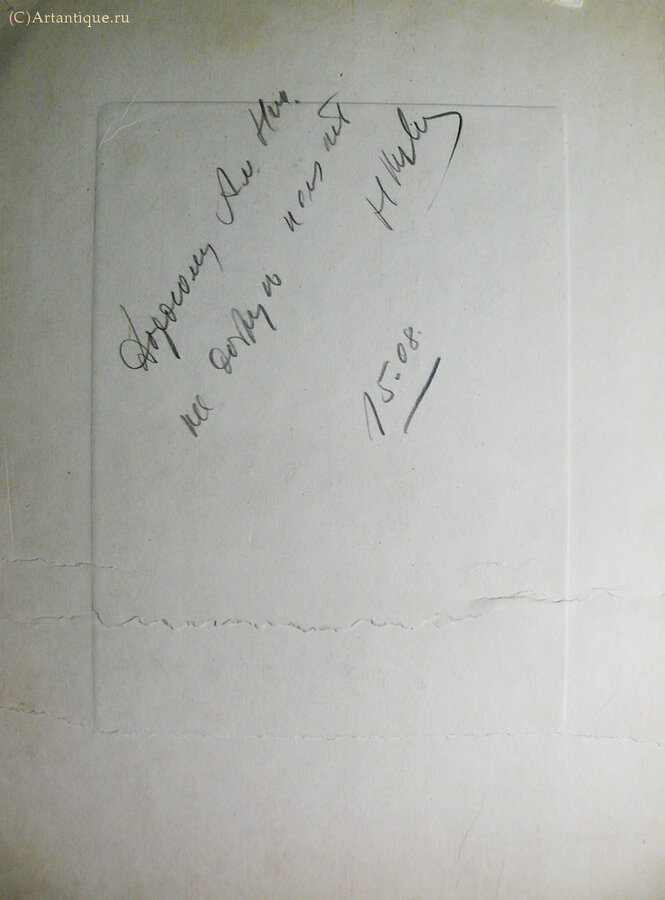 (C)Artantique.ru
Дорогому Ал. Ник.
на добрую память
15.08.